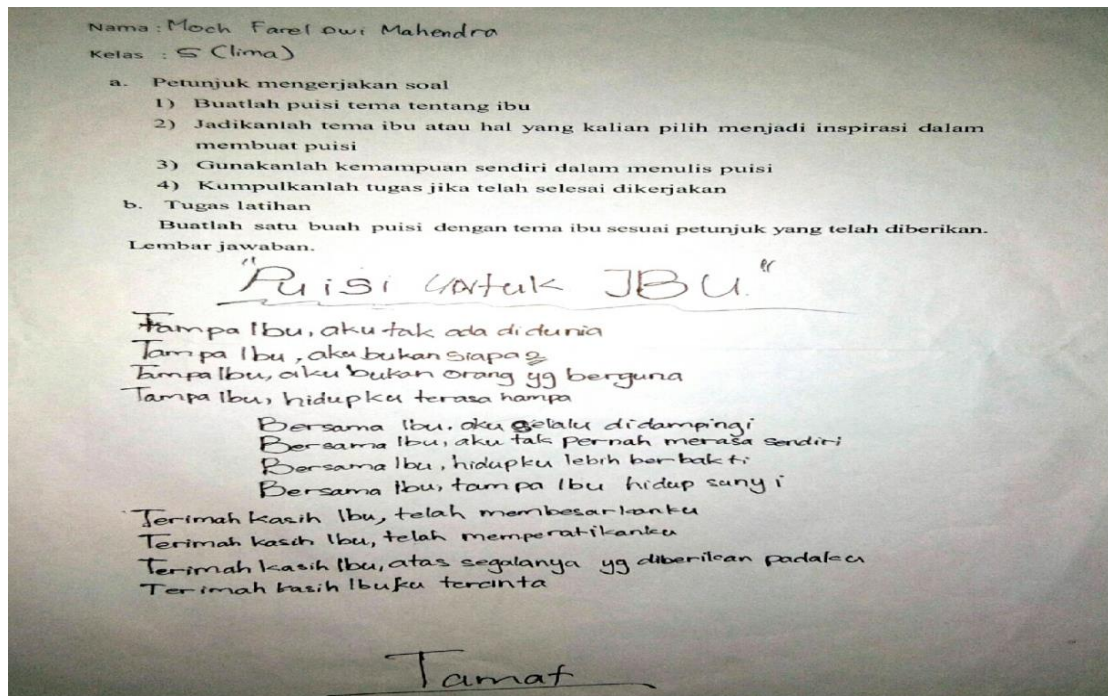 Nama : Moch Farel Dwi Mahendra
Kelas : 5 (lima)
a. Petunjuk mengerjakan soal
1) Buatlah puisi tema tentang ibu
2) Jadikanlah tema ibu atau hal yang kalian pilih menjadi inspirasi dalam
membuat puisi
3) Gunakanlah kemampuan sendiri dalam menulis puisi
4) Kumpulkanlah tugas jika telah selesai dikerjakan
b. Tugas latihan
Buatlah satu buah puisi dengan tema ibu sesuai petunjuk yang telah diberikan.
Lembar jawaban.
"Puisi untuk IBU."
Tampa Ibu, aku tak ada di dunia
Tampa Ibu, aku bukan siapa2
Tampa Ibu, aku bukan orang yg berguna
Tampa Ibu, hidupku terasa hampa
Bersama Ibu. aku selalu didampingi
Bersama Ibu, aku tak pernah merasa sendiri
Bersama Ibu, hidupku lebih berbakti
Bersama Ibu, tampa Ibu hidup sunyi
Terimah kasih Ibu, telah membesarkanku
Terimah kasih Ibu, telah memperatikanku
Terimah kasih Ibu, atas segalanya yg diberikan padaku
Terimah kasih Ibuku tercinta
Tamat